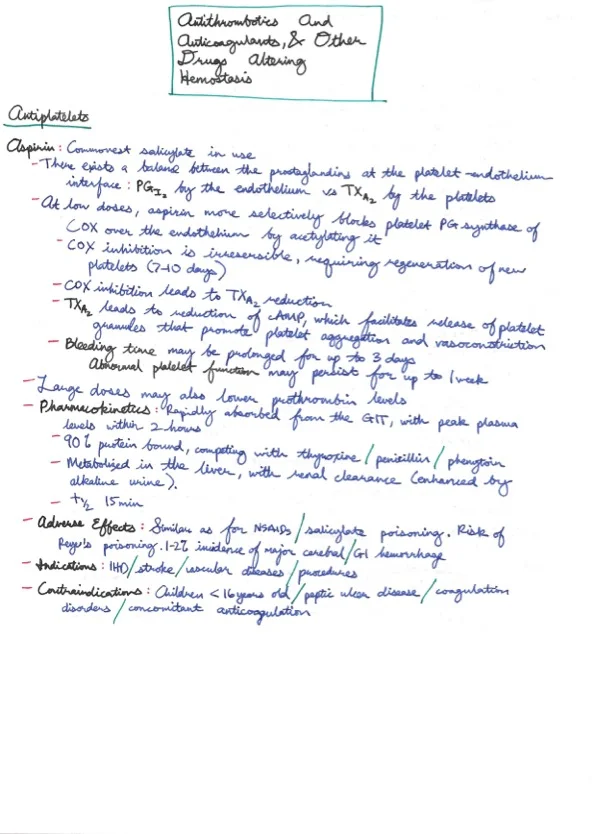 Antithrombotics And
Anticoagulants, & Other
Drugs Altering
Hemostasis
Antiplatelets
Aspirin : Commonest salicylate in use
- There exists a balance between the prostaglandins at the platelet-endothelium
interface : PGI₂ by the endothelium vs TXA₂ by the platelets
- At low doses, aspirin more selectively blocks platelet PG synthase of
COX over the endothelium by acetylating it
- COX inhibition is irreversible, requiring regeneration of new
platelets (7-10 days)
- COX inhibition leads to TXA₂ reduction
- TXA₂ leads to reduction of cAMP, which facilitates release of platelet
granules that promote platelet aggregation and vasoconstriction
- Bleeding time may be prolonged for up to 3 days
Abnormal platelet function may persist for up to 1 week
- Large doses may also lower prothrombin levels
- Pharmacokinetics : Rapidly absorbed from the GIT, with peak plasma
levels within 2 hours
- 90% protein bound, competing with thyroxine / penicillin / phenytoin
- Metabolized in the liver, with renal clearance (enhanced by
alkaline urine).
- t½ 15min
- Adverse Effects : Similar as for NSAIDs / salicylate poisoning. Risk of
Reye's poisoning. 1-2% incidence of major cerebral / GI hemorrhage
- Indications : IHD / stroke / vascular diseases / procedures
- Contraindications : Children < 16 years old / peptic ulcer disease / coagulation
disorders / concomitant anticoagulation